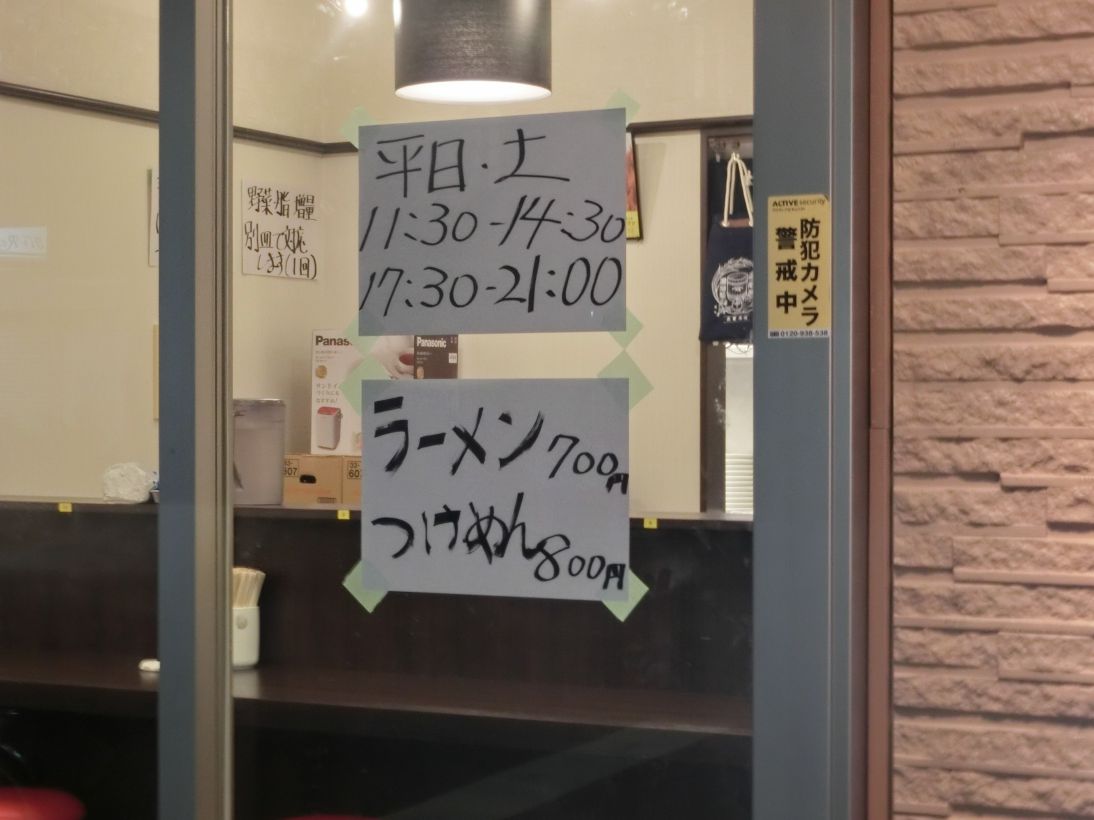 平日・土
11:30-14:30
17:30-21:00
ラーメン700円
つけめん800円
野菜 脂 増量
別皿で対応
します(1回)
Panasonic
Panasonic
ACTIVE security
防犯カメラ
警戒中
0120-938-538